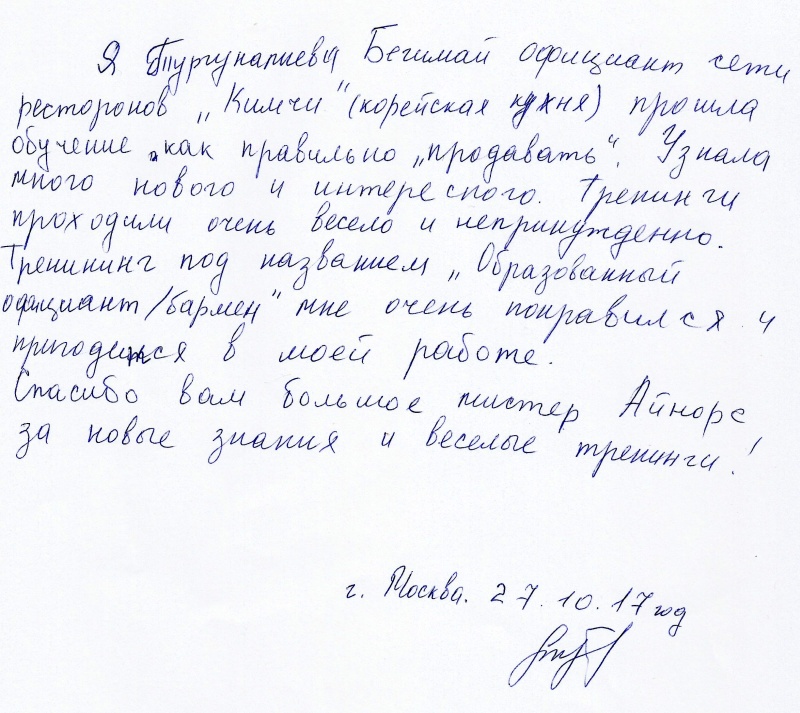 Я Тургуналиева Бегимай официант сети
ресторонов „Кимчи" (корейская кухня) прошла
обучение „как правильно „продавать". Узнала
много нового и интересного. Тренинги
проходили очень весело и непринужденно.
Тренининг под названием „Образованный
официант/бармен" мне очень понравился и
пригодится в моей работе.
Спасибо вам большое мистер Айнарс
за новые знания и веселые тренинги!
г. Москва. 27.10.17 год